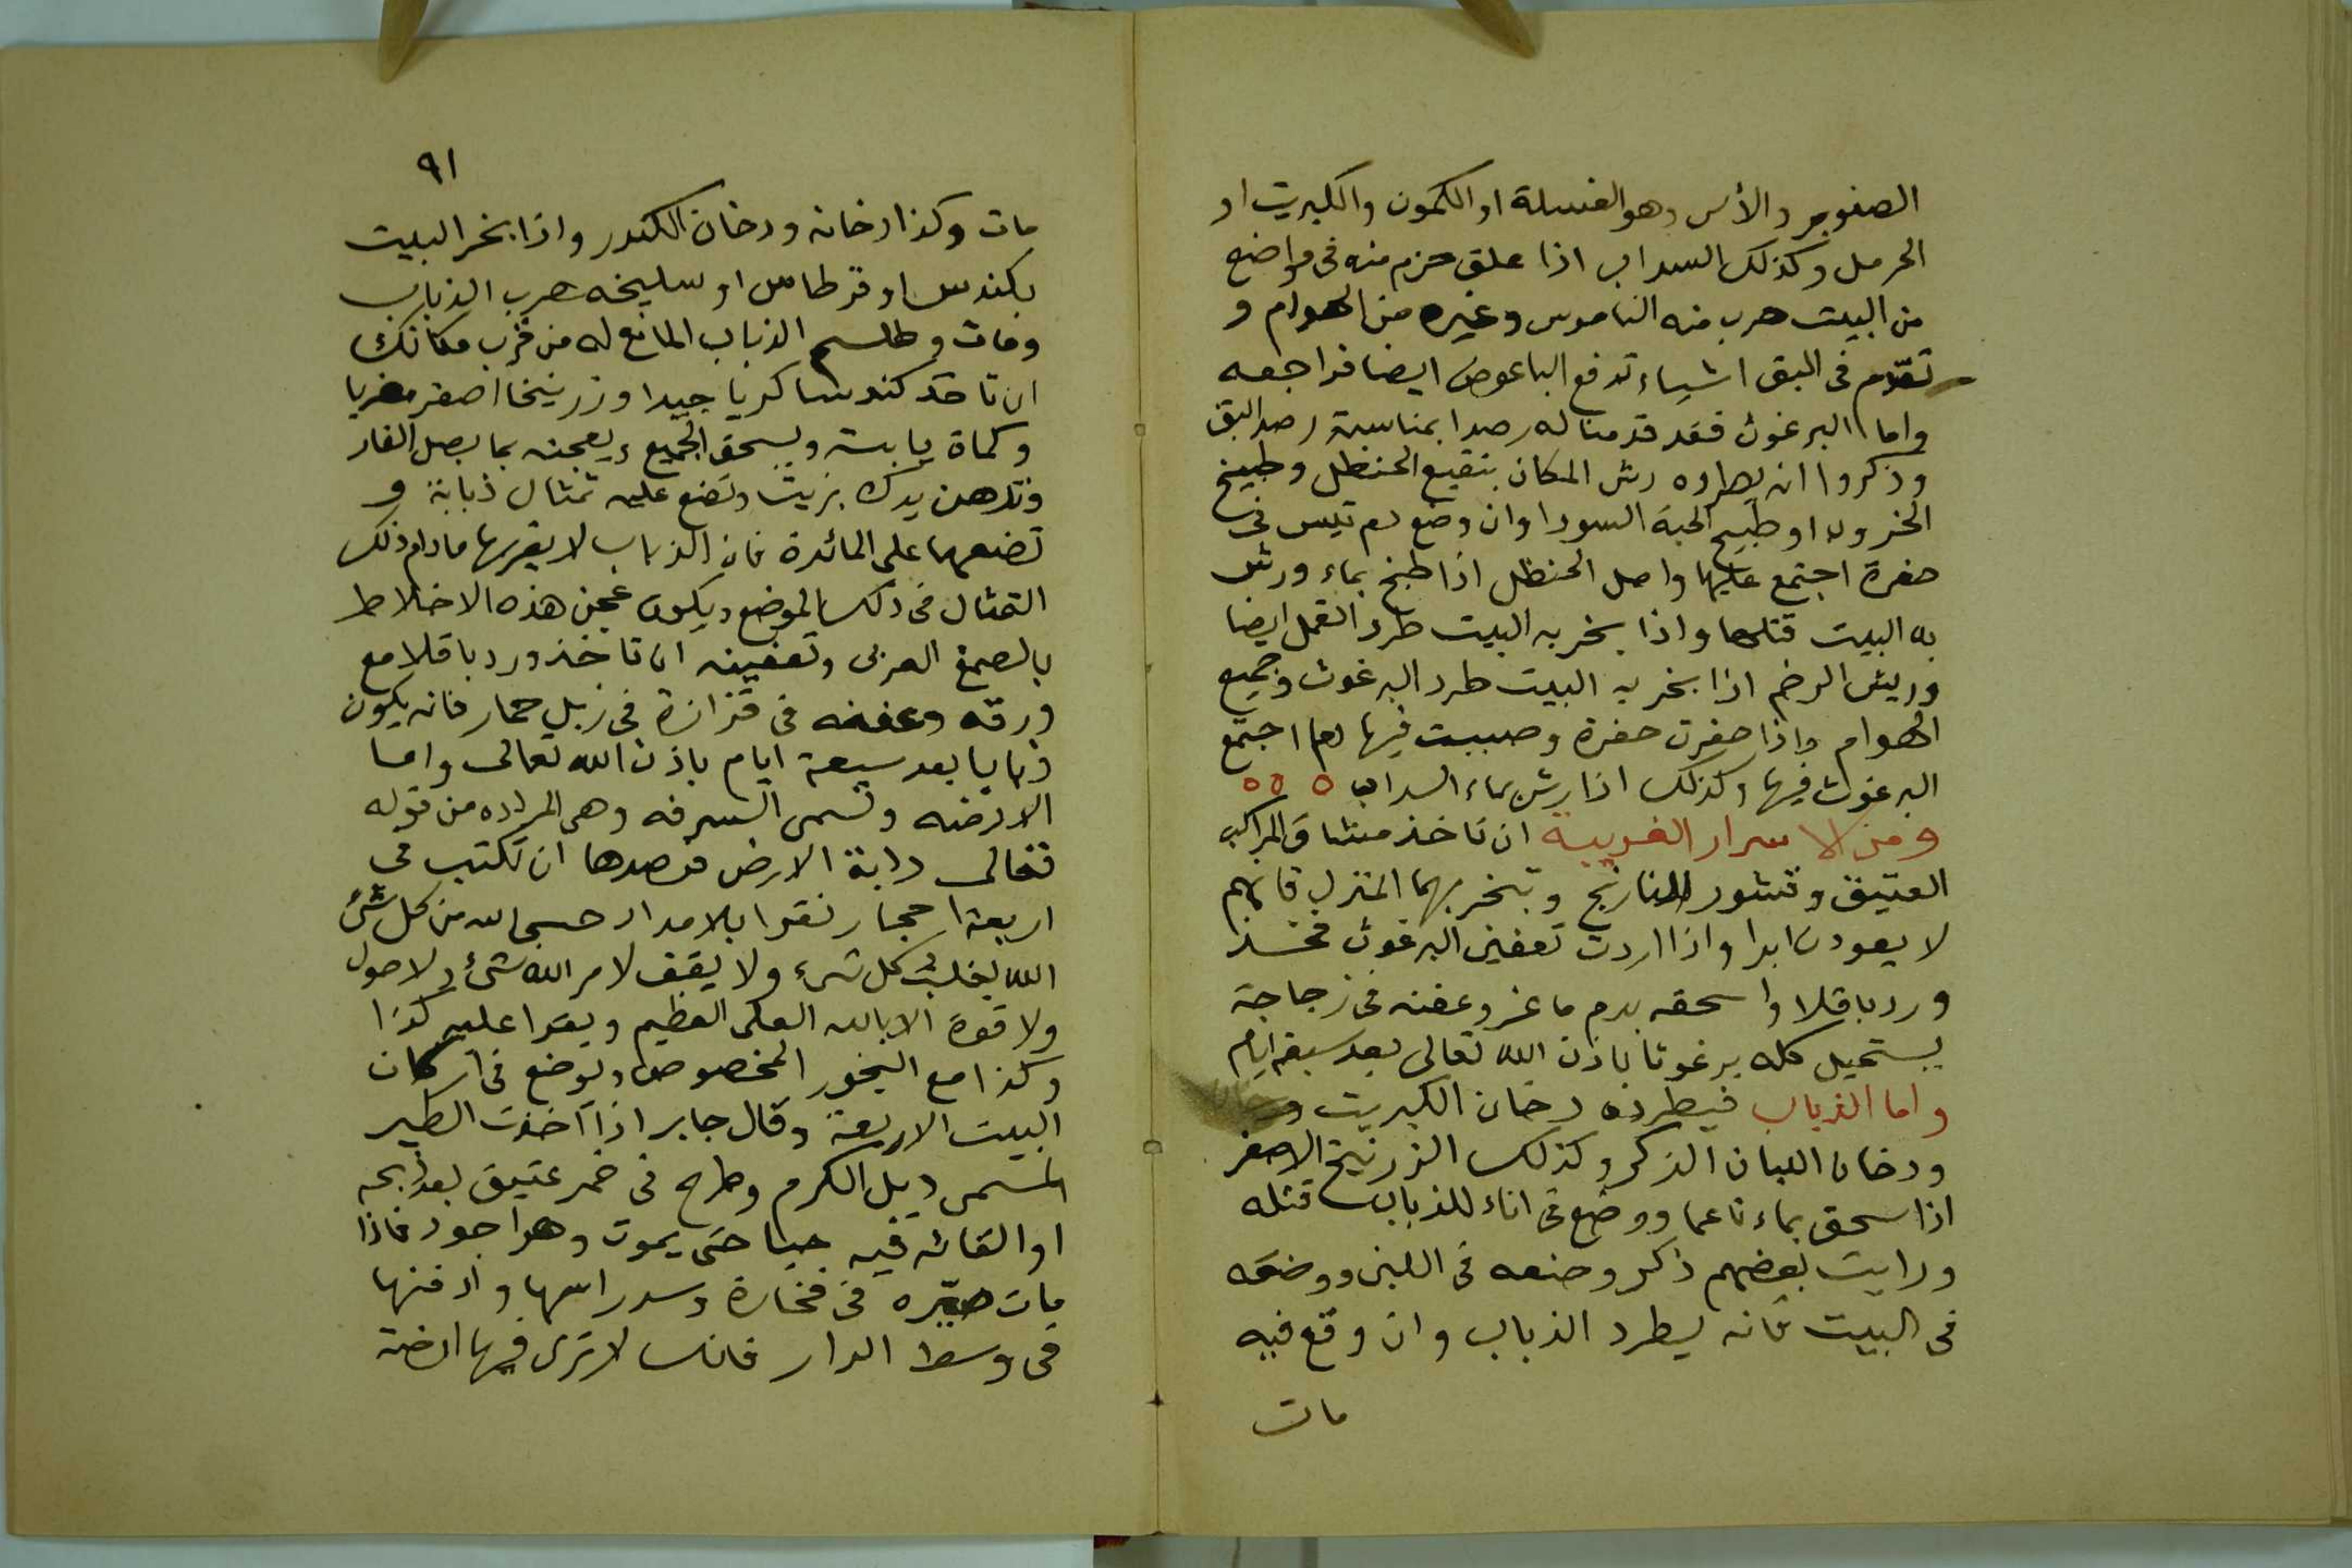 الصنوبر والأس وهو الغسلة او الكمون والكبريت او
الحرمل وكذلك السداب اذا علق حزم منه فى مواضع
من البيت هرب منه الناموس وغيره من الهوام و
تقدّم فى البق اشياء تدفع الباعوض ايضا فراجعه
واما البرغوث فقد قدمنا له رصدا بمناسبة رصد البق
وذكروا انه يطرده رش المكان بنقيع الحنظل وطبيخ
الخرول او طبيخ الحبة السودا وان وضع دم تيس فى
حفرة اجتمع عليها واصل الحنظل اذا طبخ بماء ورش
به البيت قتلها واذا بخر به البيت طرد القمل ايضا
وريش الرخم اذا بخر به البيت طرد البرغوث وجميع
الهوام واذا حفرت حفرة وصببت فيها دما اجتمع
البرغوث فيها وكذلك اذا رش بماء السداب ٥ ٥ ٥
ومن الاسرار الغريبة ان تاخذ مشاق المراكب
العتيق وقشور النارنج وتبخر بهما المنزل فانهم
لا يعودن ابدا واذا اردت تعفين البرغوث فخذ
ورد باقلا واسحقه بدم ماعز وعفنه فى زجاجة
يستحيل كله برغوثا باذن الله تعالى بعد سبعة ايام
واما الذباب فيطرده دخان الكبريت
ودخان اللبان الذكر وكذلك الزرنيخ الاصفر
اذا سحق بماء ناعما ووضع فى اناء للذباب قتله
ورايت بعضهم ذكر وضعه فى اللبن ووضعه
فى البيت فانه يطرد الذباب وان وقع فيه
مات
٩١
مات وكذا دخانه ودخان الكندر واذا بخر البيت
بكندس او قرطاس او سليخه هرب الذباب
ومات وطلسم الذباب المانع له من قرب مكانك
ان تاخذ كندسا كريا جيدا وزرنيخا اصفر مغربيا
وكماة يابسة ويسحق الجميع ويعجنه بما بصل الفار
وتدهن يدك بزيت وتضع عليه تمثال ذبابة و
تضعهما على المائدة فان الذباب لا يقربها مادام ذلك
التمثال فى ذلك الموضع ويكون عجن هذه الاخلاط
بالصمغ العربى وتعفينه ان تاخذ ورد باقلا مع
ورقه وعفنه فى قزازة فى زبل حمار فانه يكون
ذبابا بعد سبعة ايام باذن الله تعالى واما
الارضه وتسمى السرفه وهى المراده من قوله
تعالى دابة الارض فرصدها ان تكتب فى
اربعة احجار نقرا بلا مداد حسبى الله من كل شئ
الله يغلب كل شىء ولا يقف لامر الله شئ ولا حول
ولا قوة الا بالله العلى العظيم ويقرا عليه كذا
وكذا مع البخور المخصوص ويوضع فى اركان
البيت الاربعة وقال جابر اذا اخذت الطير
المسمى ديل الكرم وطرح فى خمر عتيق بعد ذبحه
او القائه فيه حيا حتى يموت وهو اجود فاذا
مات صيّره فى فخارة وسد راسها وادفنها
فى وسط الدار فانك لا ترى فيها ارضة